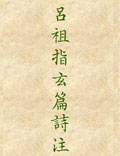 呂祖指玄篇詩注